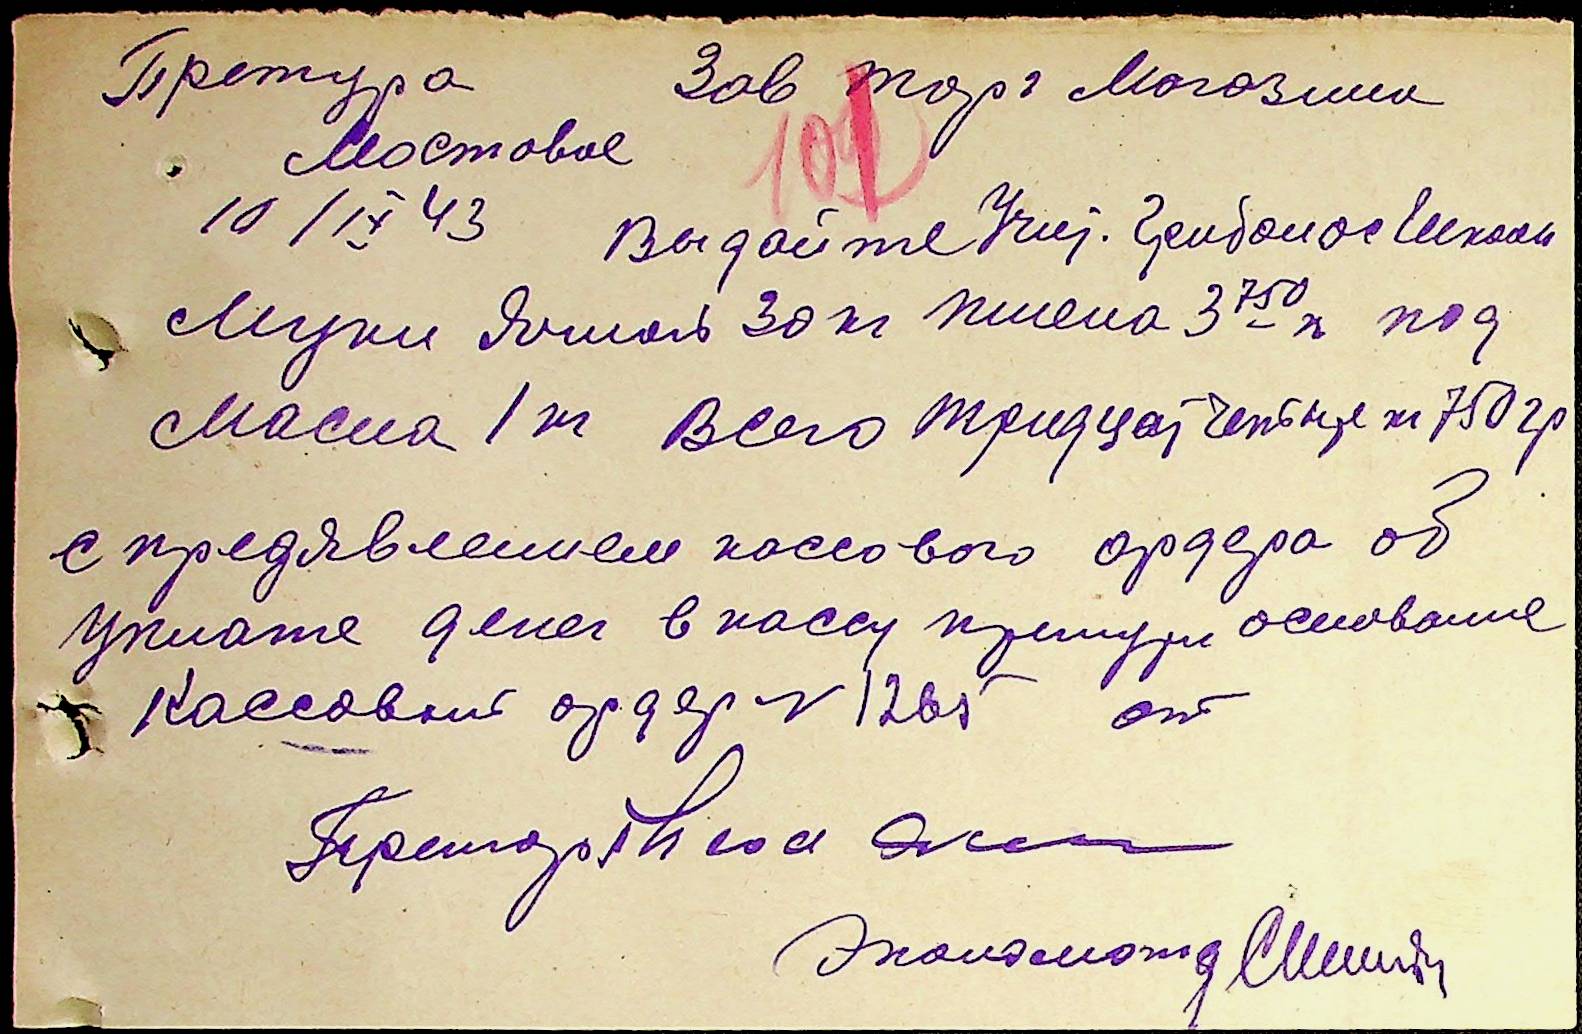 Претура Зав торг Магазина
Мостовое
104
10/IX 43 Выдайте Учит. Грибонос Школы
Муки Ячмень 30 кг пшена 3 750 к под
Масла 1 кг Всего тридцат четыре кг 750 гр
с предявлением кассового ордера об
уплате денег в кассу претури основание
Кассовый ордер N 1265 от
Претор
Эконом отд